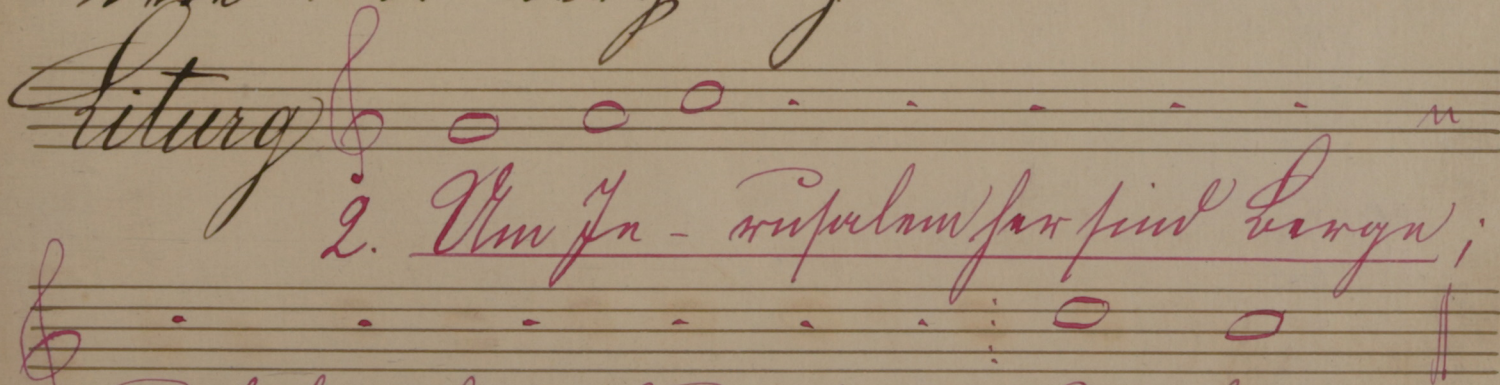 Liturg
2. Um Je - rusalem her sind Berge;